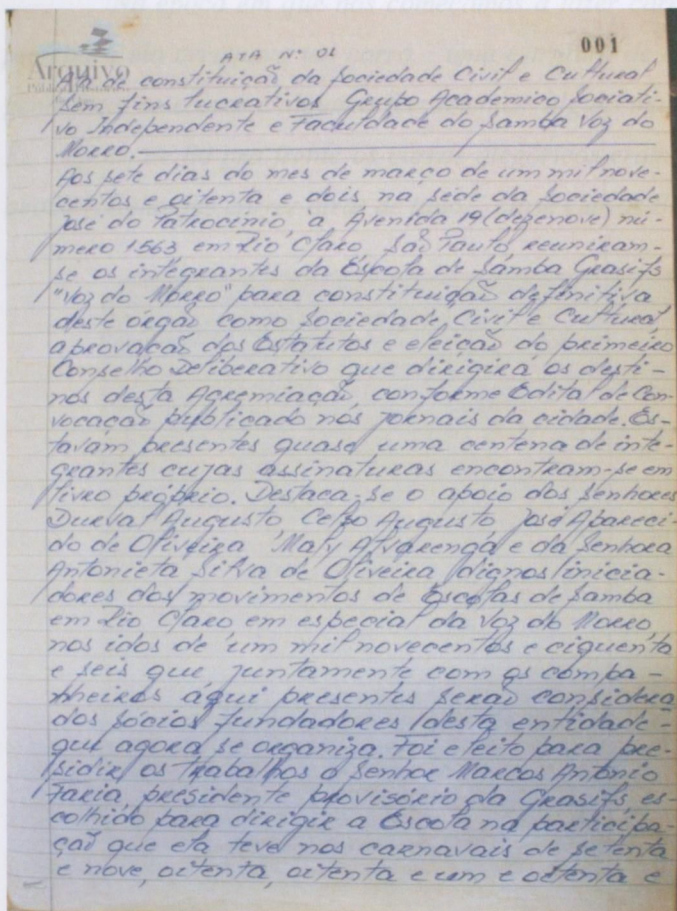 001
ATA Nº 01
Arquivo
Ata de constituição da Sociedade Civil e Cultural
sem fins lucrativos Grupo Academico Sociati-
vo Independente e Faculdade do Samba Voz do
Morro.
Aos sete dias do mes de março de um mil nove-
centos e oitenta e dois na séde da Sociedade
José do Patrocínio à Avenida 19 (dezenove) nú-
mero 1563 em Rio Claro, São Paulo, reuniram-
se os integrantes da Escola de Samba Grasifs
"Voz do Morro" para constituição definitiva
deste órgão como Sociedade Civil e Cultural,
aprovação dos Estatutos e eleição do primeiro
Conselho Deliberativo que dirigirá os desti-
nos desta Agremiação, conforme Edital de Con-
vocação publicado nos jornais da cidade. Es-
tavam presentes quase uma centena de inte-
grantes cujas assinaturas encontram-se em
livro próprio. Destaca-se o apoio dos Senhores
Durval Augusto, Celso Augusto, José Apareci-
do de Oliveira, Maly Alvarenga e da Senhora
Antonieta Silva de Oliveira, dignos inicia-
dores dos movimentos de Escolas de Samba
em Rio Claro em especial da Voz do Morro
nos idos de um mil novecentos e ciquenta
e seis que, juntamente com os compa-
nheiros aqui presentes serão considera
dos sócios fundadores desta entidade-
que agora se organiza. Foi eleito para pre-
sidir os trabalhos o Senhor Marcos Antonio
Faria, presidente provisório da Grasifs, es-
colhido para dirigir a Escola na participa-
ção que ela teve nos carnavais de setenta
e nove, oitenta, oitenta e um e oitenta e